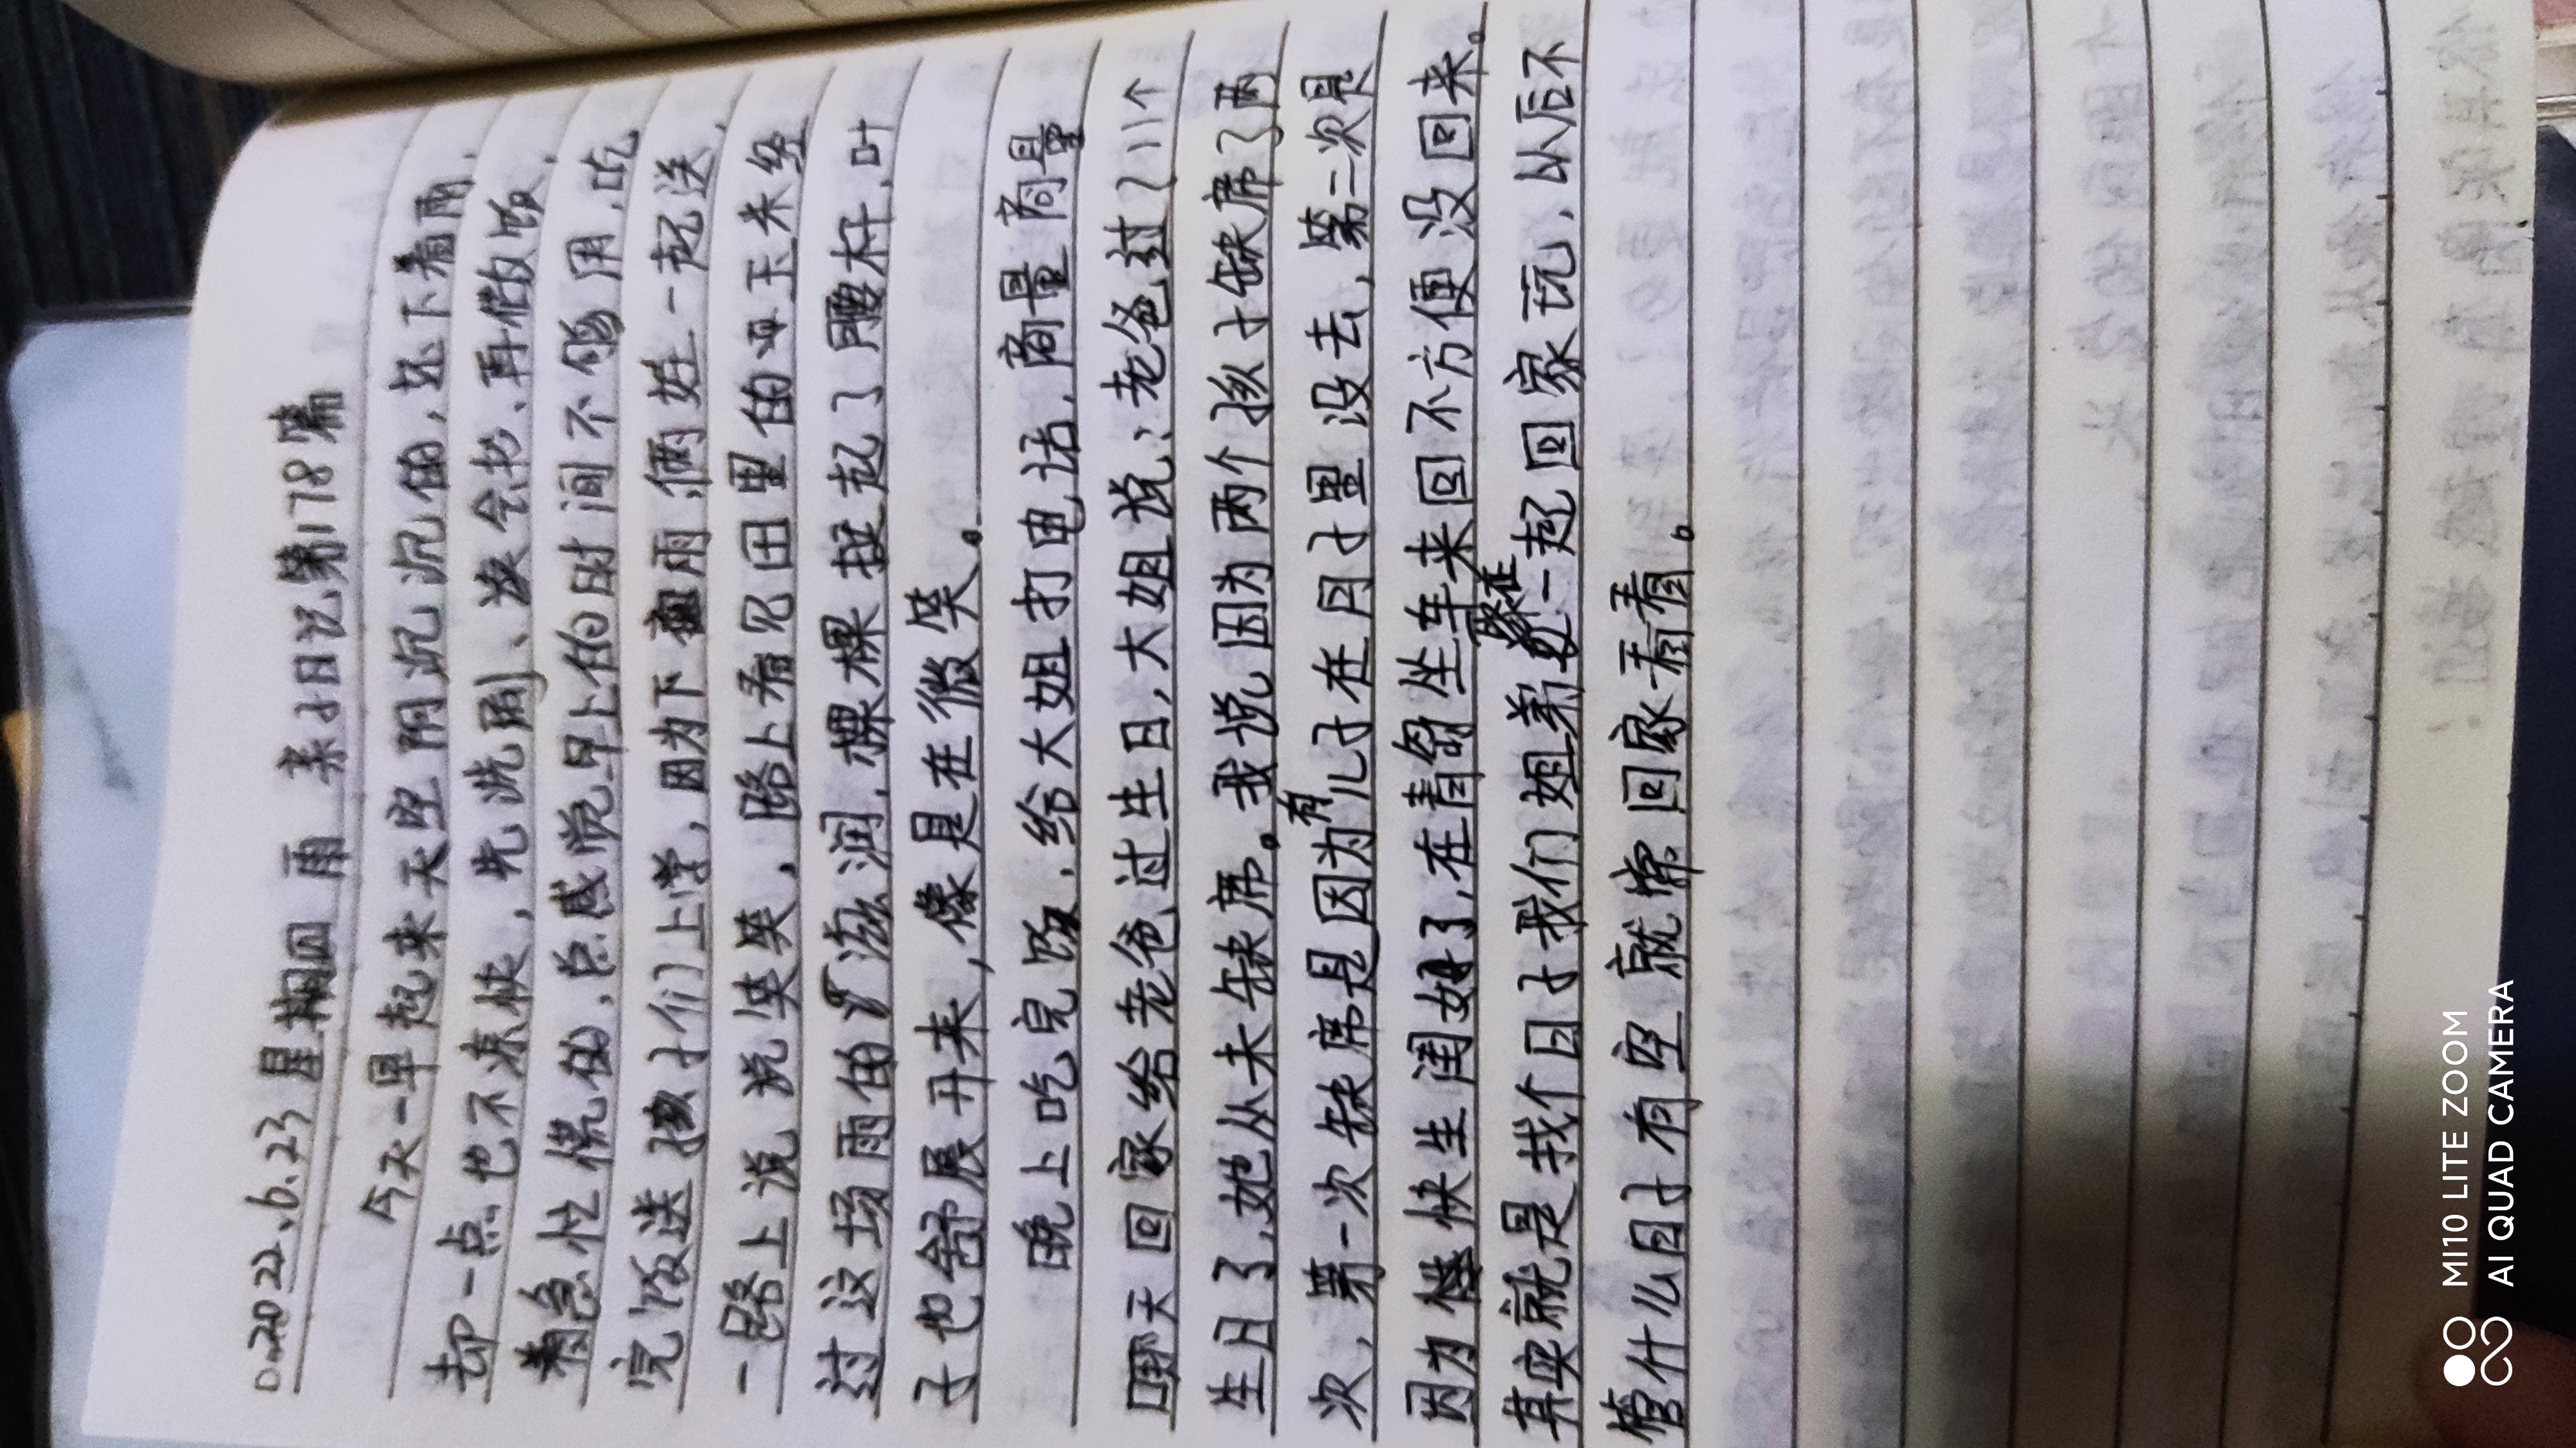 2022.6.23 星期四 雨 亲子日记第178篇
今天一早起来天空阴沉沉的,还下着雨,
却一点也不凉快,先洗刷、读会书、再做饭,
着急忙慌的,总感觉早上的时间不够用,吃
完饭送孩子们上学,因为下雨俩姓一起送,
一路上说说笑笑,路上看见田里的玉米经
过这场雨的滋润,棵棵挺起了腰杆,叶
子也舒展开来,像是在微笑。
晚上吃完饭,给大姐打电话,商量商量
哪天回家给老爸过生日,大姐说:老爸过了11个
生日了,她从未缺席。我说因为两个孩子缺席了两
次,第一次缺席是因为有儿子在月子里没去,第二次是
因为楼快生闺女了,在青岛坐车来回不方便没回来。
其实就是找个日子我们姐弟聚在一起回家玩,以后不
管什么日子有空就常回家看看。
MI10 LITE ZOOM
AI QUAD CAMERA